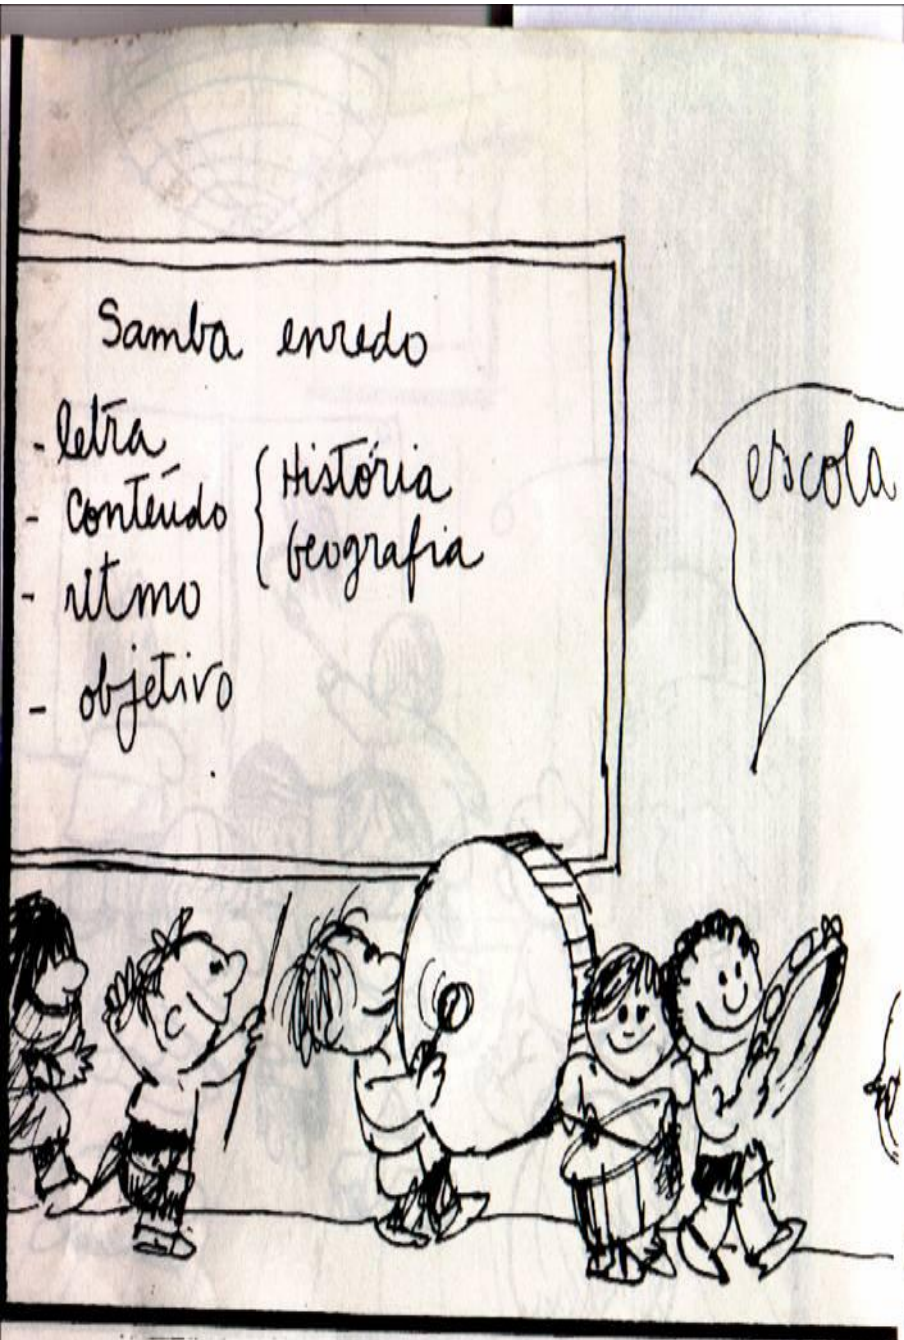 Samba enredo
- letra
- contéudo { História
Geografia
- ritmo
- objetivo
escola